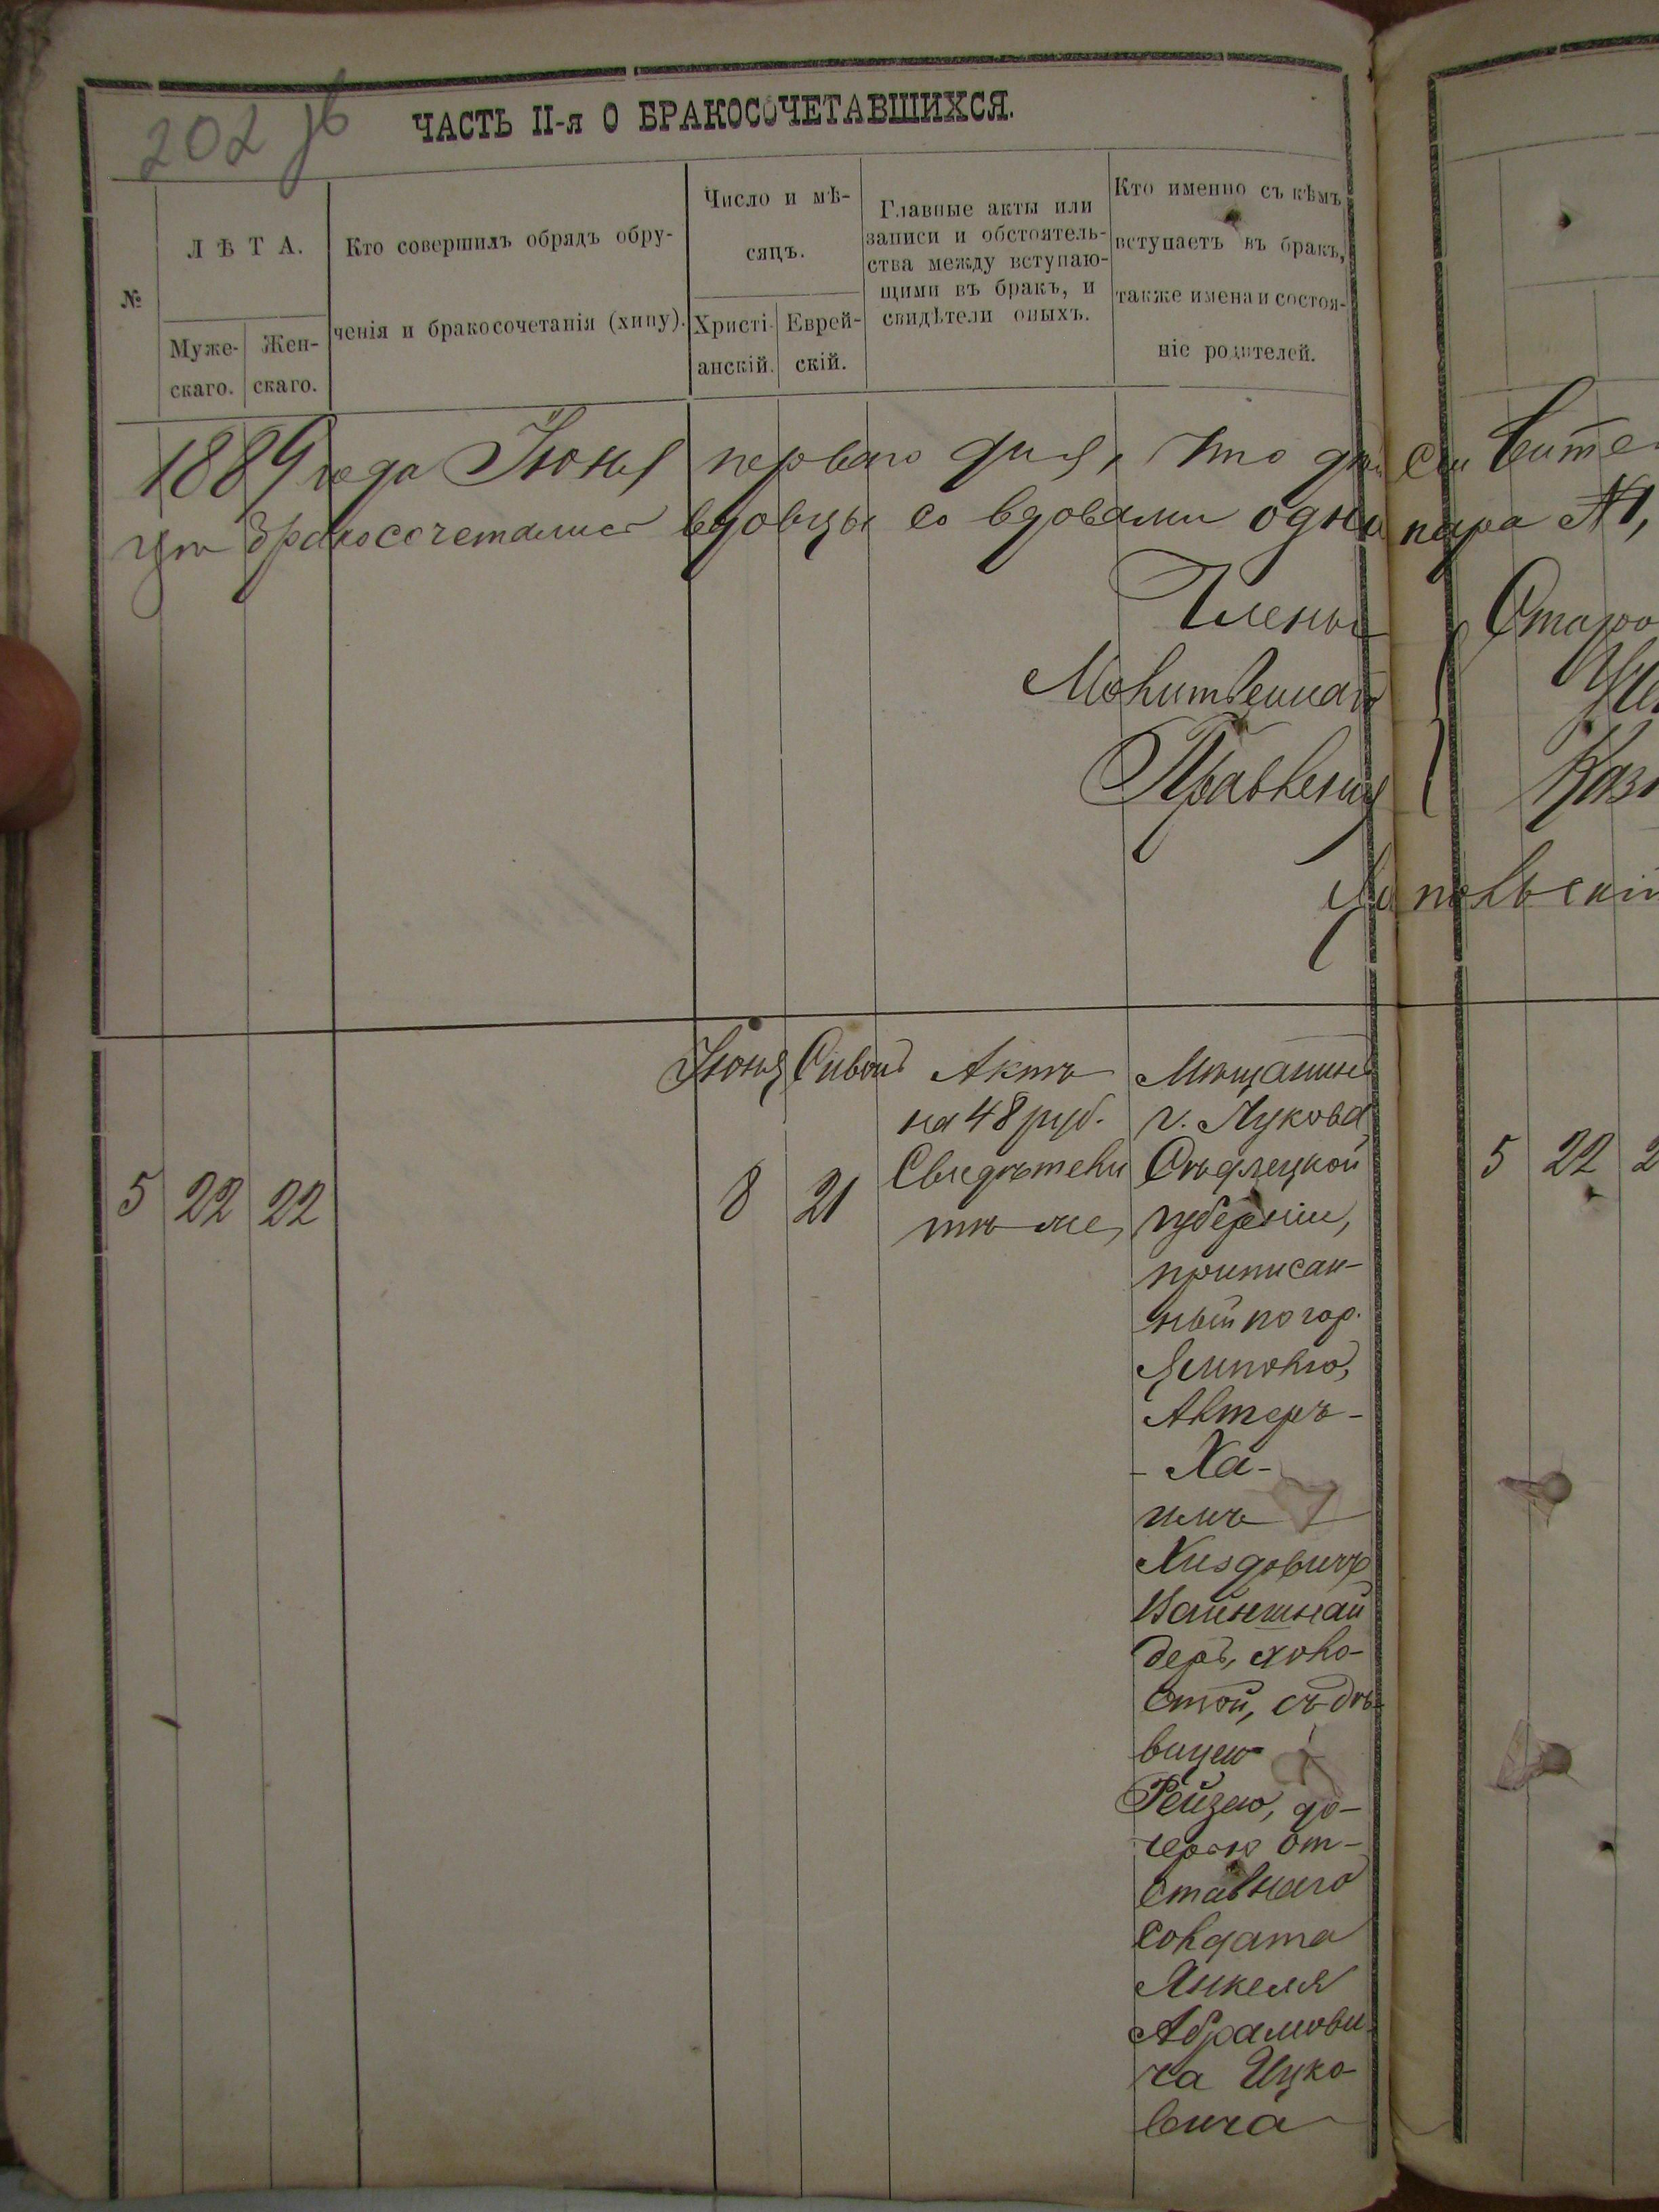 202 об
ЧАСТЬ II-я О БРАКОСОЧЕТАВШИХСЯ.
№
ЛѢТА.
Муже-
скаго.
Жен-
скаго.
Кто совершилъ обрядъ обру-
ченія и бракосочетанія (хипу).
Число и мѣ-
сяцъ.
Христі-
анскій.
Еврей-
скій.
Главные акты или
записи и обстоятель-
ства между вступаю-
щими въ бракъ, и
свидѣтели оныхъ.
Кто именно съ кѣмъ
вступаетъ въ бракъ,
также имена и состоя-
ніе родителей.
1889 года Іюня перваго дня, что
бракосочетались вдовцы со вдовами одна пара №1,
Члены
Молитвеннаго
Правленія
Іюня
Сивонъ
Актъ
на 48 руб.
Свидѣтели
тѣ же,
5 22 22
8 21
Мѣщанинъ
г. Лукова
Сѣдлецкой
губерніи,
приписан-
ный по гор.
Ямполю,
Алтеръ-
-Ха-
имъ
Вайншнай
деръ, холо-
стой, съ дѣ-
вицею
Рейзею, до-
черью от-
ставнаго
солдата
Янкеля
Абрамови-
ча Ицко-
вича
5 22 2